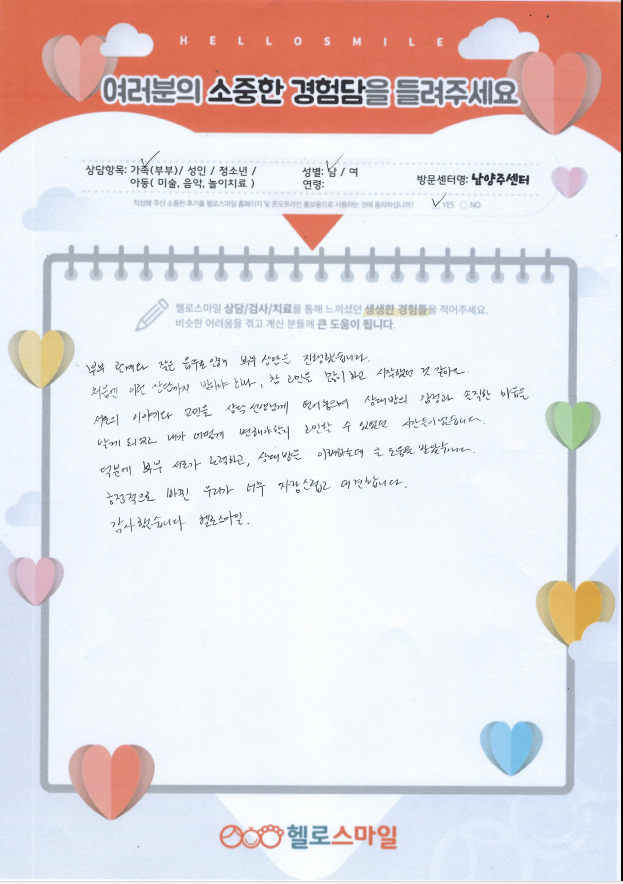 HELLOSMILE
여러분의 소중한 경험담을 들려주세요
상담항목: 가족(부부)/ 성인 / 청소년 /
아동( 미술, 음악, 놀이치료 )
성별: 남 / 여
연령:
방문센터명: 남양주센터
작성해 주신 소중한 후기를 헬로스마일 홈페이지 및 온오프라인 홍보용으로 사용하는 것에 동의하십니까? ✓YES □ NO
헬로스마일 상담/검사/치료를 통해 느끼셨던 생생한 경험들을 적어주세요.
비슷한 어려움을 겪고 계신 분들께 큰 도움이 됩니다.
부부 관계와 잦은 음주로 인하여 부부 상담을 진행했습니다.
처음엔 이런 상담까지 받아야 하나, 참 고민을 많이 하고 시작했던 것 같아요.
서로의 이야기와 고민을 상담 선생님께 털어놓으며 상대방의 감정과 솔직한 마음을
알게 되고 내가 어떻게 변해야할지 고민할 수 있었던 시간들이었습니다.
덕분에 부부 서로가 노력하고, 상대방을 이해하는데 큰 도움을 받았습니다.
긍정적으로 바뀐 우리가 너무 자랑스럽고 대견합니다.
감사했습니다 헬로스마일.
헬로스마일